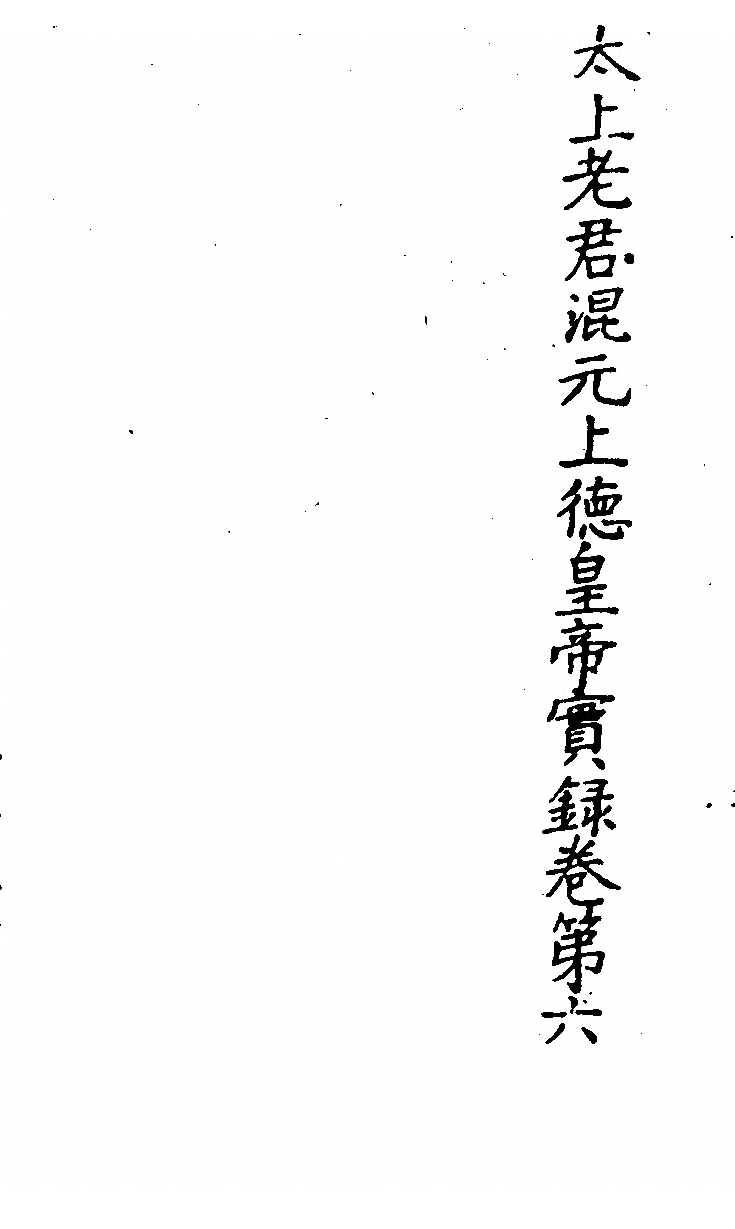 太上老君混元上德皇帝實録卷第六